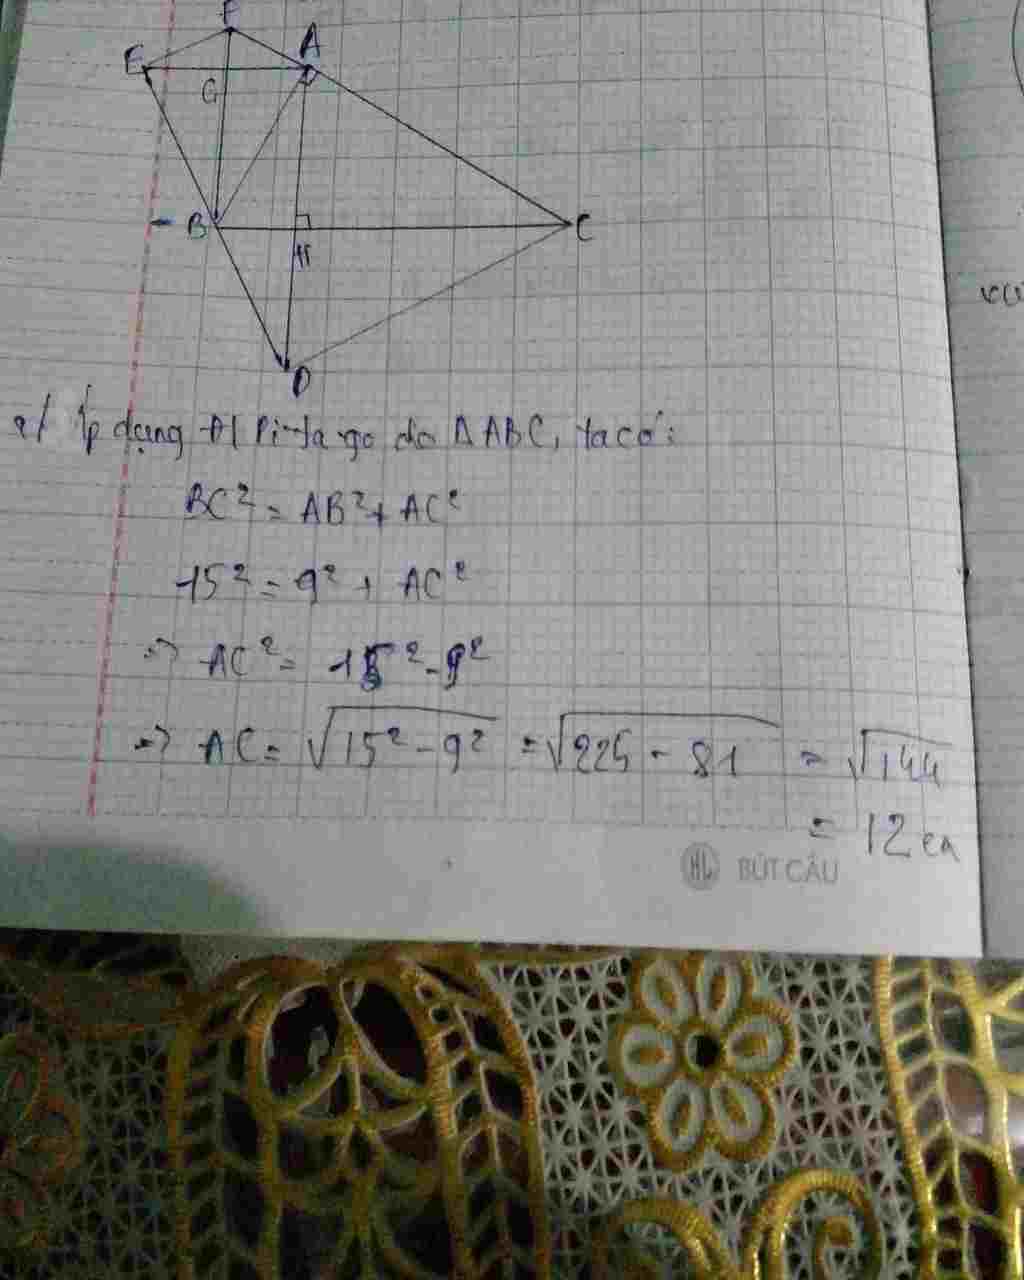 F
E
A
G
B
H
C
D
a/ Áp dụng Đl Pi-ta-go do ΔABC, ta có:
BC² = AB² + AC²
15² = 9² + AC²
=> AC² = 15² - 9²
=> AC = √15² - 9² = √225 - 81 = √144
= 12 cm
HL BÚT CÂU